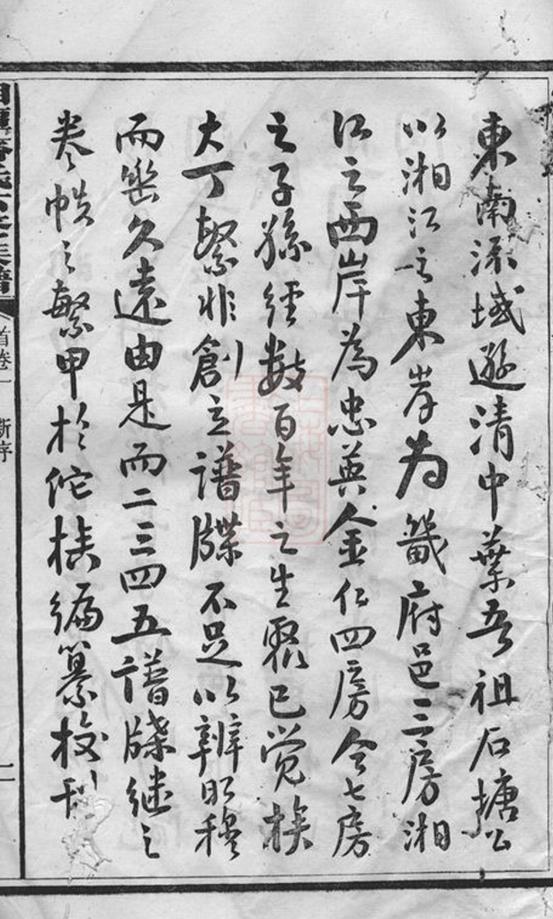 東南流域遜清中葉吾祖石塘公
以湘江之東岸為箴府邑三房湘
江之西岸為忠英金仁四房合七房
之子孫經數百年之生聚已覺族
大丁繁非創立譜牒不足以辨昭穆
而密久遠由是而二三四五譜牒继之
卷帙之繁甲於佗族编纂校刊
首卷一
新序
二